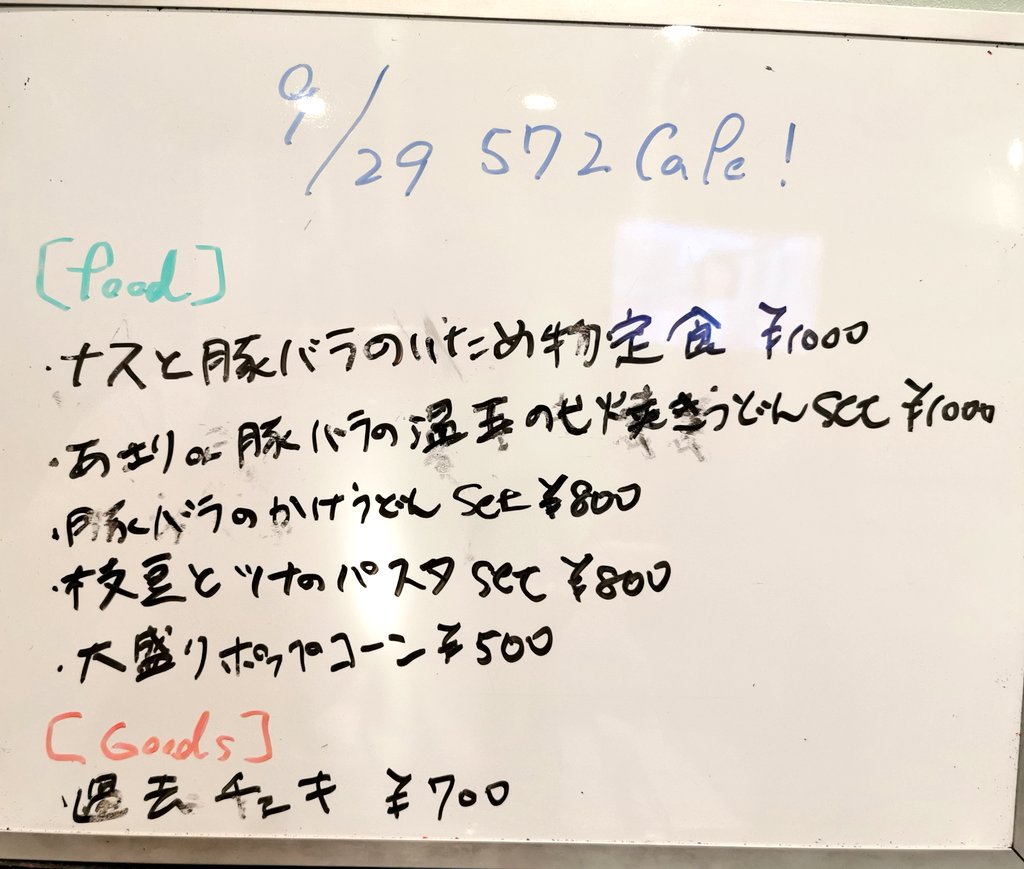 9/29 572 Cafe!
[food]
・ナスと豚バラのいため物定食 ¥1000
・あさりと豚バラの温玉のせ焼きうどん set ¥1000
・豚バラのかけうどん set ¥800
・枝豆とツナのパスタ set ¥800
・大盛りポップコーン ¥500
[Goods]
過去チェキ ¥700